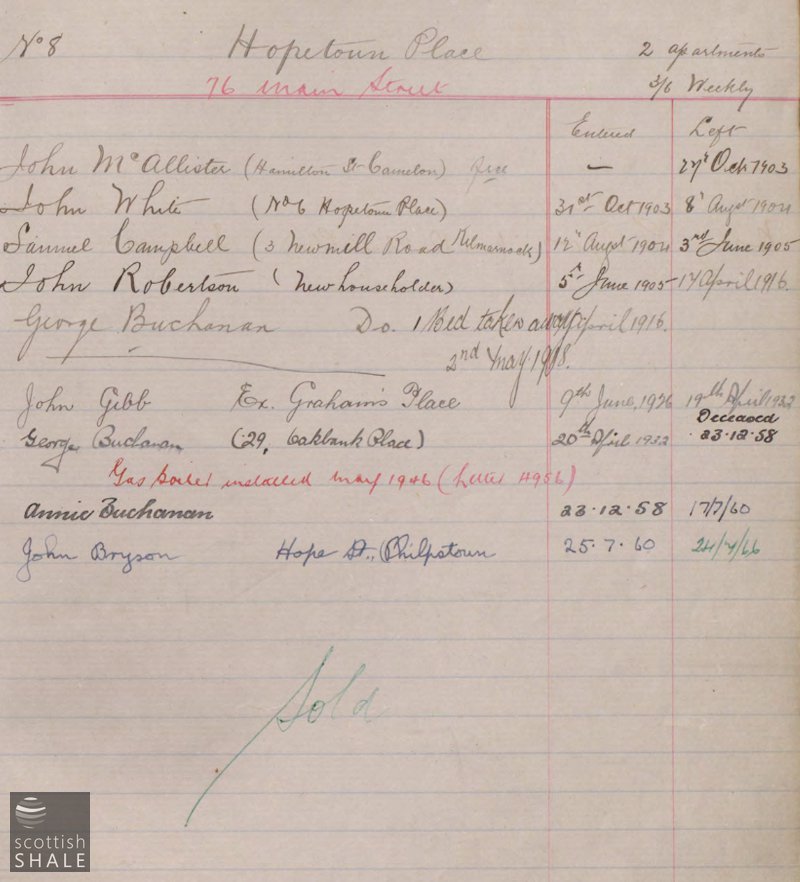 No 8 Hopetoun Place 2 apartments
76 Main Street 3/6 Weekly
Entered Left
John McAllister (Hamilton St Camelon) — 27th Oct 1903
John White (No 6 Hopetoun Place) 31st Oct 1903 8th Augst 1904
Samuel Campbell (3 Newmill Road Kilmarnock) 12th Augst 1904 3rd June 1905
John Robertson (New householder) 5th June 1905 17 April 1916.
George Buchanan Do. 1 Bed taken away April 1916.
2nd May 1918.
John Gibb Ex. Graham's Place 9th June, 1926 19th April 1932
Deceased
George Buchanan (29, Oakbank Place) 20th April 1932 23.12.58
Gas boiler installed May 1946 (Letter 4956)
Annie Buchanan 23.12.58 17/7/60
John Bryson Hope St., Philpstoun 25.7.60 24/4/66
Sold
scottish
SHALE